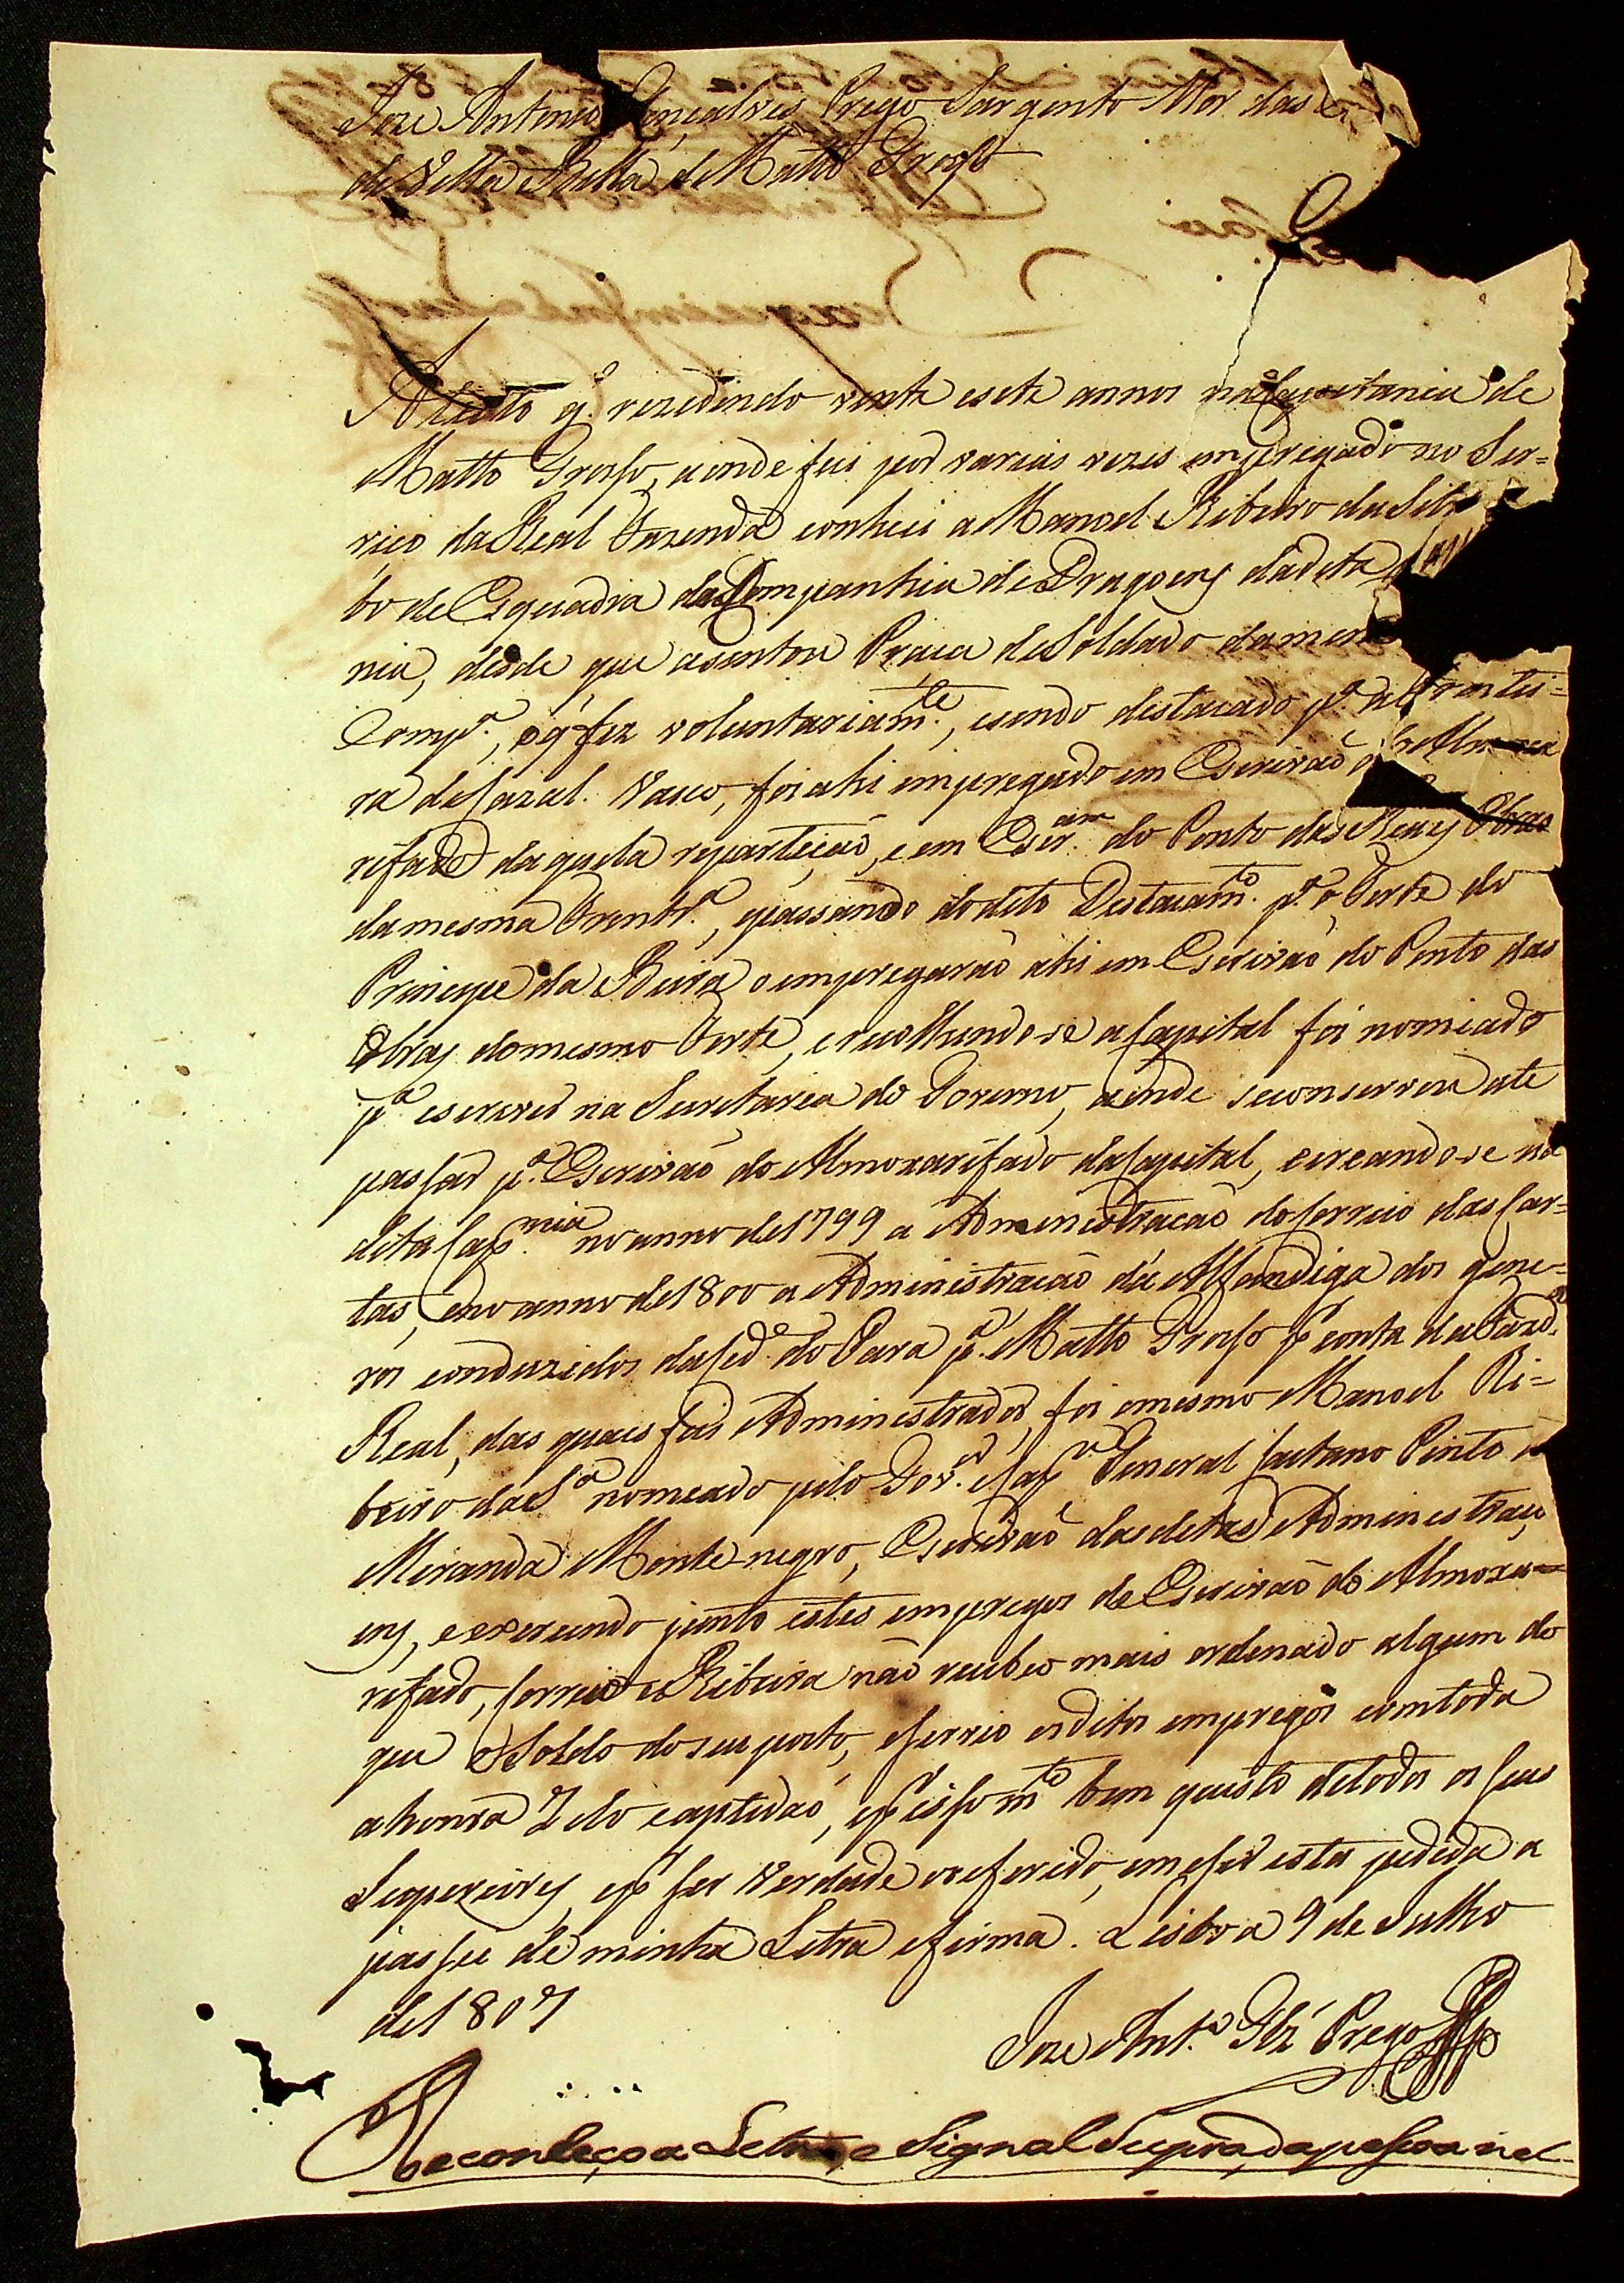 Joze Antonio Gonçalves Prego Sargento Mor das
de Villa Bella de Matto Grosso
Attesto q. rezedindo vente esete annos na Capitania de
Matto Grosso, aonde fui por varias vezes empregado no Ser=
viço da Real Fazenda conheci a Manoel Ribeiro da Silv
bo de Esquadra da Companhia de Dragoens da dita
nia, desde que asentou Praça de Soldado da mes
Comp.ª, o q' fez voluntariam.te, esendo destacado p.ª a Frontei=
ra de Cazal Vasco, foi ahi empregado em Escrivaõ do Almoxa
rifado daquela repartiçaõ, e em Escr.am do Ponto das Reaes Obras
da mesma Front.ª, epassando do dito Destacam.to p.ª o Forte do
Principe da Beira o empregaraõ ahi em Escrivaõ do Ponto das
Obras do mesmo Forte, erecolhendo-se a Capital foi nomiado
p.ª escrever na Secretaria do Governo, aonde seconservou ate
passar p.ª Escrivaõ do Almoxarifado da Capital, ecreando-se na
dita Cap.nia no anno de 1799 a Administraçaõ do Correio das Car=
tas, eno anno de 1800 a Administraçaõ da Alfandiga dos gene=
ros conduzidos da Cid.e do Para p.ª Matto Grosso p.r conta da Fazd.ª
Real, das quaes fui Administrador, foi omesmo Manoel Ri=
beiro da S.ª nomeado pelo Gov.or e Cap.m General Caetano Pinto de
Miranda Montenegro, Escrivaõ das ditas Administraço
ens, eexercendo junto estes empregos de Escrivaõ do Almoxa=
rifado, Correio e Ribeira naõ recebeo mais ordenado algum do
que o Soldo do seu posto, eservio os ditos empregos comtoda
ahonra Zelo eaptidaõ, ep.r isso m.to bem quisto detodos os seus
Superiores, ep.r ser verdade oreferido, em esta pedida a
passei de minha Letra efirma. Lisboa 9 de Julho
de 1807
Joze Ant.º Glz' Prego
Reconheço a Letra, e Signal Supra, da pessoa nel-